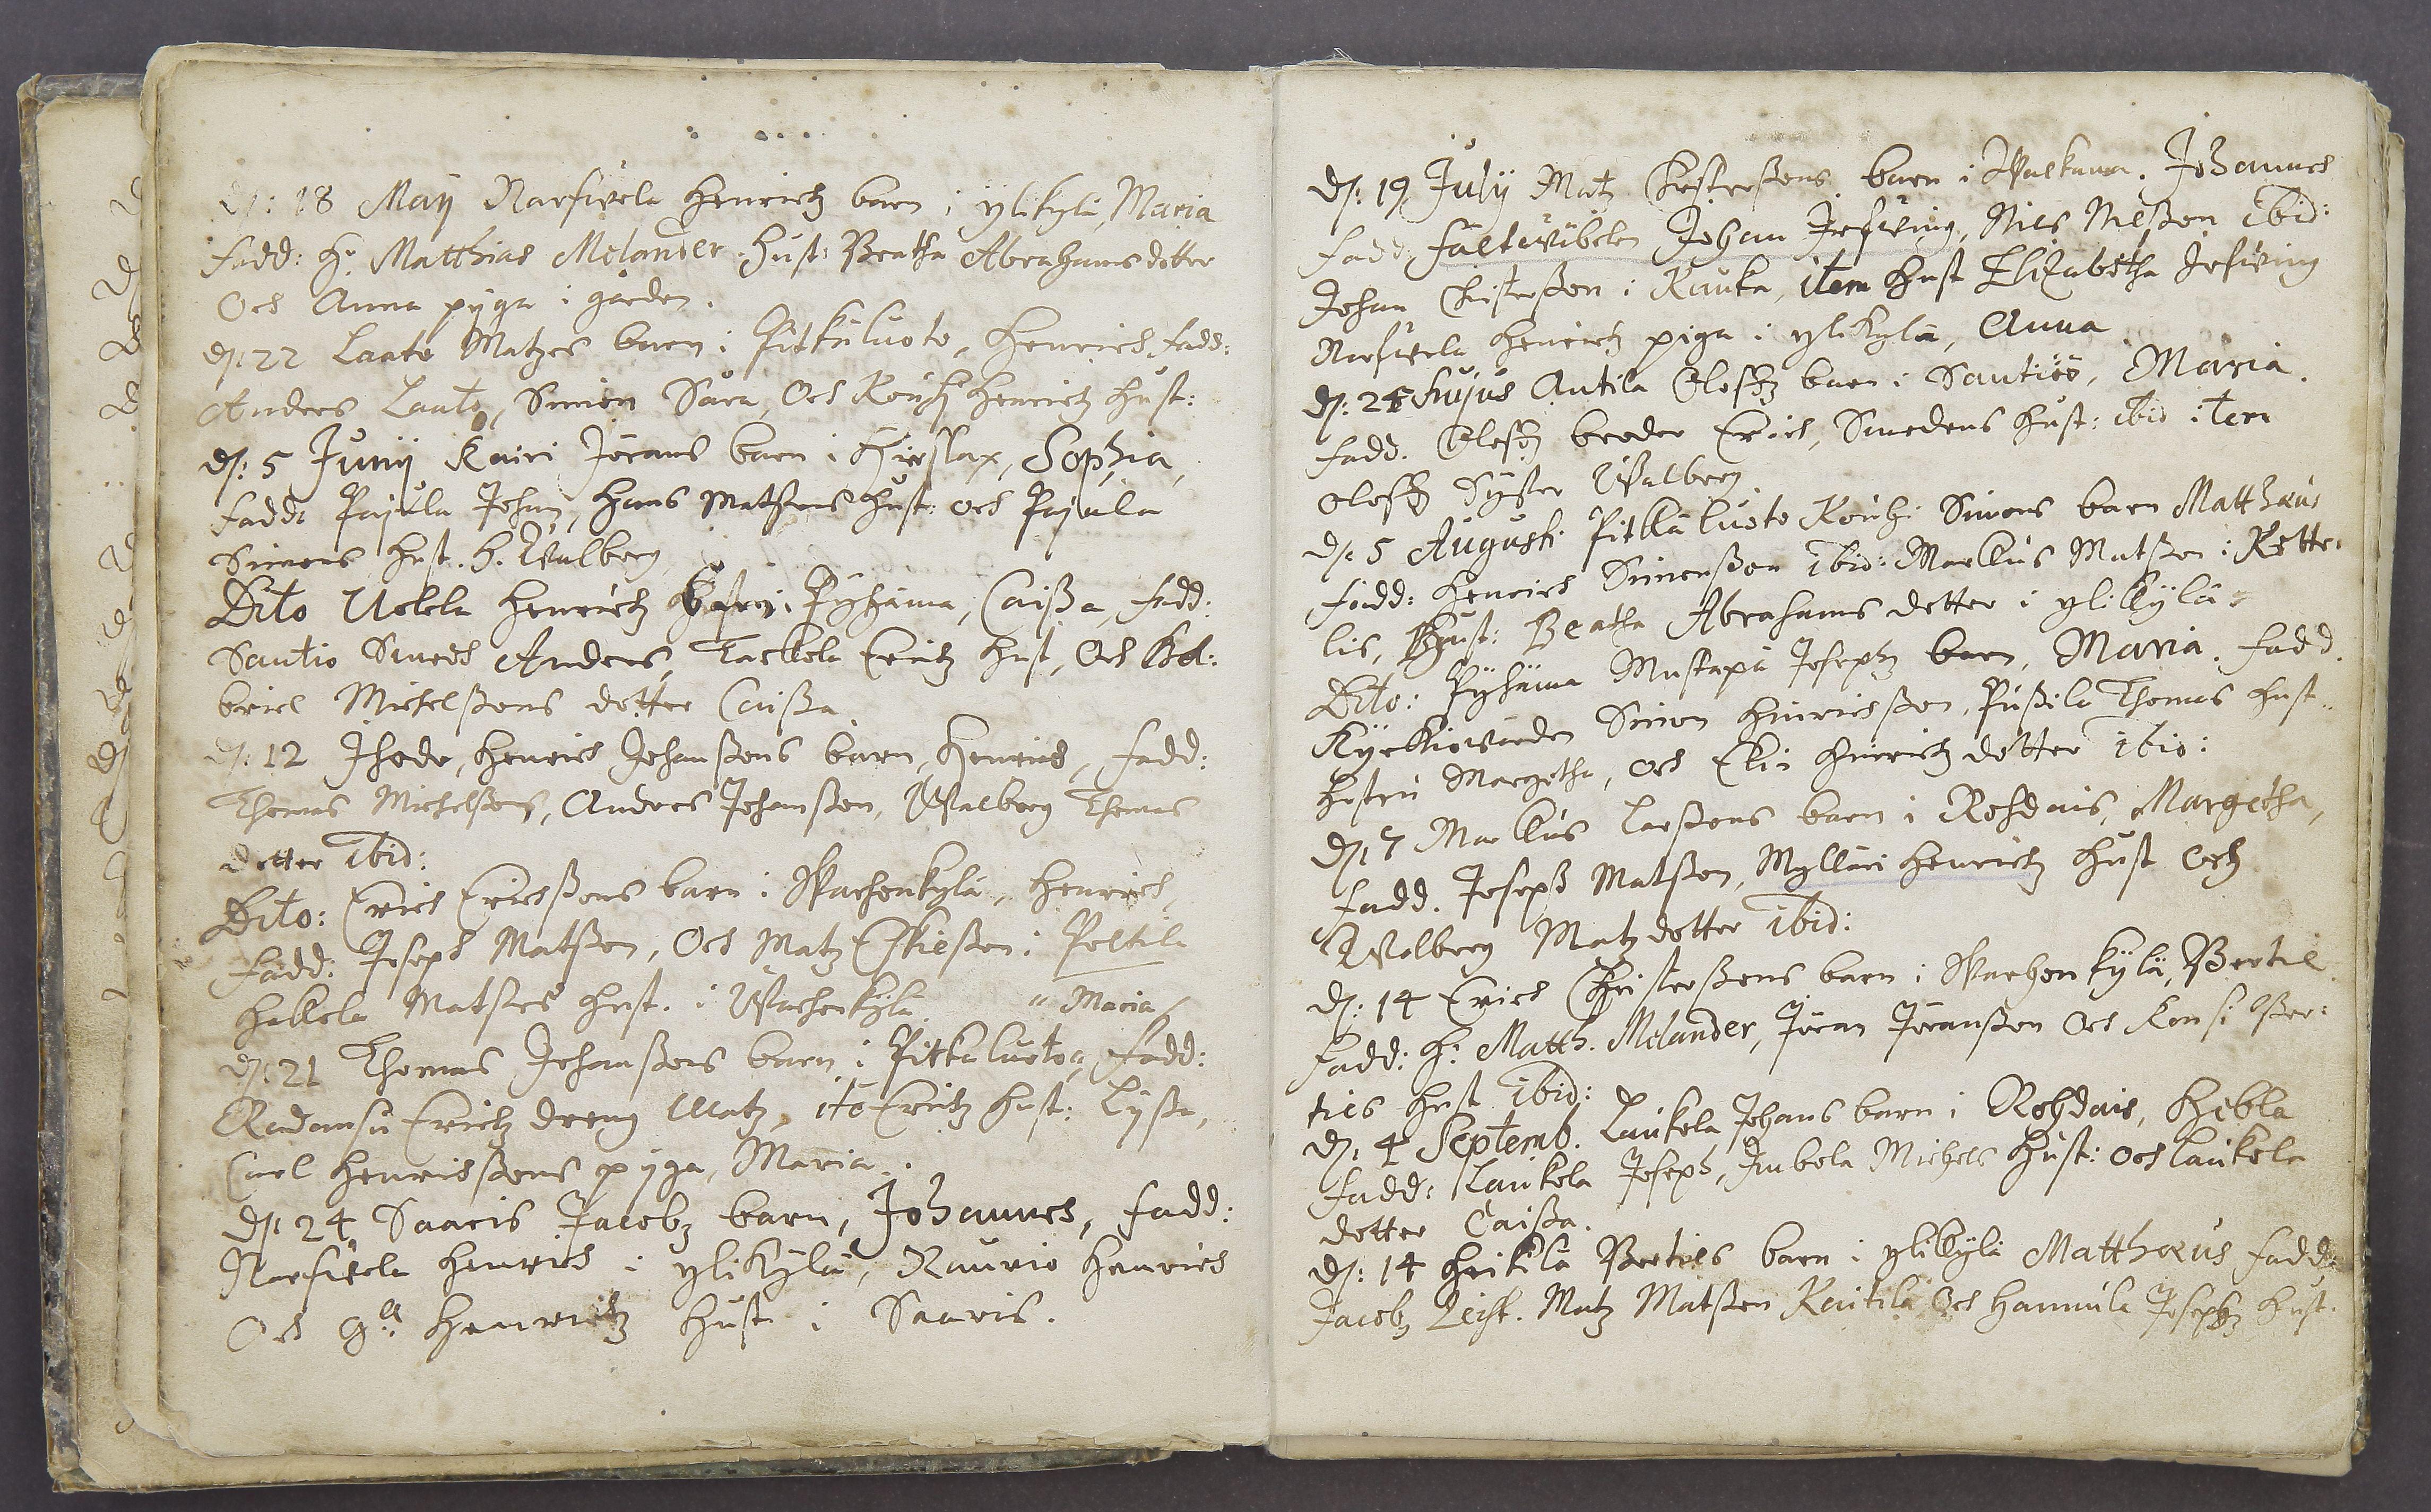 D: 18 Maij Narfwela Henrichz barn i ylikylä, Maria
fadd: H: Matthias Melander. Hust: Beatha Abrahams dotter
Och Anna pyga i gården.
D: 22 Laato Matzes barn i Pitkäluoto, Henrich, fadd:
Anders Laato, Simon Såra, Och Kouhi Henrichz hust:
D: 5 Junij Kairi Jörans barn i Hirslax, Sophia,
fadd: Pajula Johan, Hans Matsons hust: och Pajula
Simons hust. H. Walborg
Dito Uckela Henrichz barn i Pyhäma, Caissa, fadd:
Santio Smeds Anders, Tackola Erichz hust, Och
briel Michelssons dotter Caissa
D: 12 Ihode, Henrich Johanssons barn, Henrich, fadd:
Thomas Michelsson, Anders Johansson, Walborg Thomas
dotter ibid:
Dito: Erich Erichssons barn i Warhenkylä, Henrich,
fadd: Joseph Matsson, Och Matz Eskilsson i Poltila
Hakkola Matsses hust. i Warhenkylä. " Maria
D: 21 Thomas Johanssons barn i Pitkäluoto " fadd:
Radansu Erichz dreng Matz, ito Erichz hust: Lyssa,
Carl Henrichssons pyga, Maria.
D: 24 Saaris Jacobz barn, Johannes, fadd:
Narfwela Henrich i ylikylä, Raurio Henrich
Och g:a Henrichz hust i Saaris.
D: 19 Julij Matz Christerssons barn i Warkana. Johannes
fadd: fältwäbelen Johan Jrfwing, Nils Nilsson ibid:
Johan Christersson i Kauka, item hust Elizabetha Jrfwing
Narfwela Henrichz piga i ylikylä, Anna
D: 25 hujus Antila Oloffz barn i Santiö, Maria.
fadd. Oloffz broder Erich, Smedens hust: ibid item
Oloffz Syster Walborg.
D: 5 Augusti Pitkäluoto Kouhi Simons barn Matthæus
fadd: Henrich Simonsson ibid: Markus Matsson i Kette-
lis, Hust: Beatha Abrahams dotter i ylikylä
Dito: Pyhäma Mustapä Josephz barn, Maria. fadd.
Kyrkiowärden Simon Hinrichsson, Pussila Thomas hust
hustru Margetha, och Elin Hinrichz dotter ibid:
D: 7 Markus Larssons barn i Rohdais, Margetha,
fadd. Joseph Matsson, Mylläri Henrichz hust och
Walborg Matz dotter ibid:
D: 14 Erich Christerssons barn i Warhenkylä, Bertil
fadd: H: Matth. Melander, Jöran Jöransson Och Konsi Ber-
tils hust ibid:
D: 4 Septemb. Laukola Johans barn i Rohdais, Hebla
fadd: Laukola Joseph, Imbola Michels hust: och Laukola
dotter Caissa.
D: 14 Heikilä Bertils barn i ylikylä Matthæus fadd:
Jacob Leist. Matz Matsson Kautila Och Hannula Josephz hust.